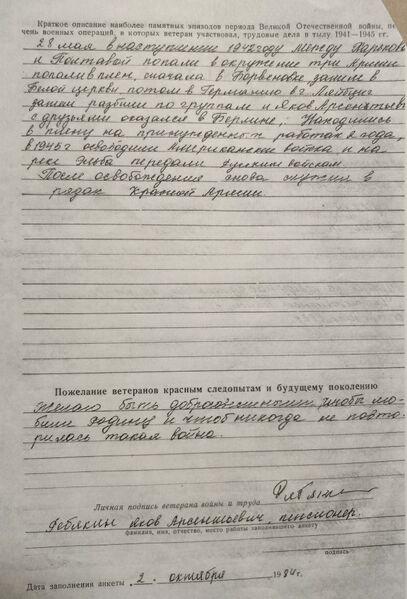 Краткое описание наиболее памятных эпизодов периода Великой Отечественной войны, пе
чень военных операций, в которых ветеран участвовал, трудовые дела в тылу 1941—1945 гг.
28 мая в наступлении 1942 году между Харьково
и Полтавой попали в окружение три Армии
попали в плен, сначала в Борвенова затем в
Белой церкви потом в Германию в г.
затем разбили по группам и Яков Арсентьеви
с друзьями оказался в Берлине, Находились
в плену на принужденных работах 2 года,
в 1945 г освободили Американские войска и на
реке Эльва передали войскам.
После освобождения снова служили в
рядах Красной Армии.
Пожелание ветеранов красным следопытам и будущему поколению
Желаю быть чтобы лю-
били Родину и чтоб никогда не повто-
рилась такая война.
Личная подпись ветерана войны и труда
Фебякин Яков Арсентиевич, пенсионер.
фамилия, имя, отчество, место работы заполнившего анкету
подпись
Дата заполнения анкеты 2 октября 1984 г.